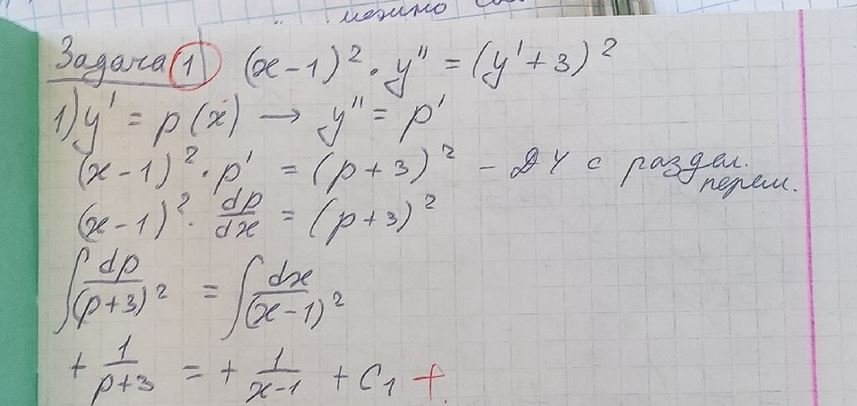 можно
Задача 1 (x-1)² · y'' = (y'+3)²
1) y' = p(x) → y'' = p'
(x-1)² · p' = (p+3)² - ДУ с раздел. перем.
(x-1)² · dp/dx = (p+3)²
∫ dp/(p+3)² = ∫ dx/(x-1)²
+ 1/(p+3) = + 1/(x-1) + C₁ +.